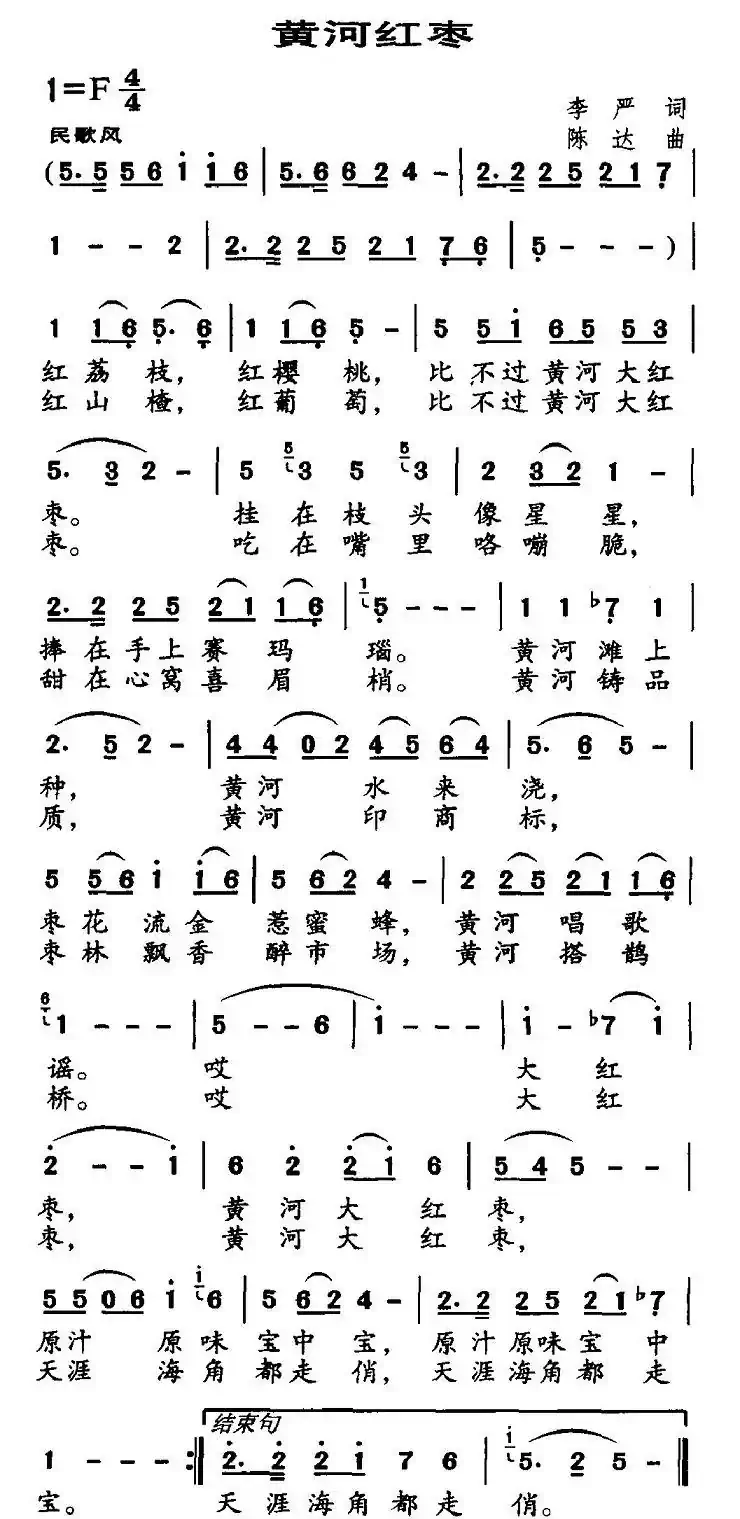 黄河红枣
1=F 4/4
李严词
民歌风
陈达曲
(5. 5 5 6 i i 6 | 5. 6 6 2 4 - | 2. 2 2 5 2 1 7 |
1 - - 2 | 2. 2 2 5 2 1 7 6 | 5 - - - ) |
1 1 6 5. 6 | 1 1 6 5 - | 5 5 i 6 5 5 3 |
红荔枝，红樱桃，比不过黄河大红
红山楂，红葡萄，比不过黄河大红
5. 3 2 - | 5 5 3 5 5 3 | 2 3 2 1 - |
枣。挂在枝头像星星，
枣。吃在嘴里咯嘣脆，
2. 2 2 5 2 1 1 6 | 1 5 - - - | 1 1 b7 1 |
捧在手上赛玛瑙。黄河滩上
甜在心窝喜眉梢。黄河铸品
2. 5 2 - | 4 4 0 2 4 5 6 4 | 5. 6 5 - |
种，黄河水来浇，
质，黄河印商标，
5 5 6 i i 6 | 5 6 2 4 - | 2 2 5 2 1 1 6 |
枣花流金惹蜜蜂，黄河唱歌
枣林飘香醉市场，黄河搭鹊
6 1 - - - | 5 - - 6 | i - - - | i - b7 i |
谣。哎大红
桥。哎大红
2 - - i | 6 2 2 i 6 | 5 4 5 - - |
枣，黄河大红枣，
枣，黄河大红枣，
5 5 0 6 i i 6 | 5 6 2 4 - | 2. 2 2 5 2 1 b7 |
原汁原味宝中宝，原汁原味宝中
天涯海角都走俏，天涯海角都走
结束句
1 - - - :‖ 2. 2 2 i 7 6 | i 5. 2 5 - ‖
宝。天涯海角都走俏。